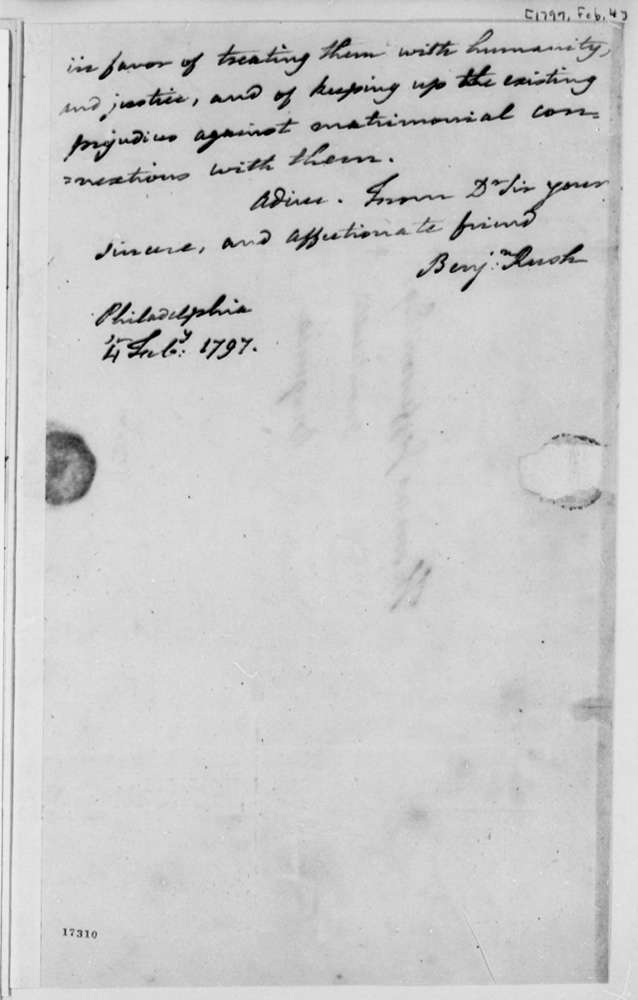 [1797, Feb. 4]
in favor of treating them with humanity,
and justice, and of keeping up the existing
prejudices against matrimonial con=
=nextions with them.
Adieu. From Dr Sir your
sincere, and affectionate friend
Benjn: Rush
Philadelphia
4 Feby: 1797.
17310